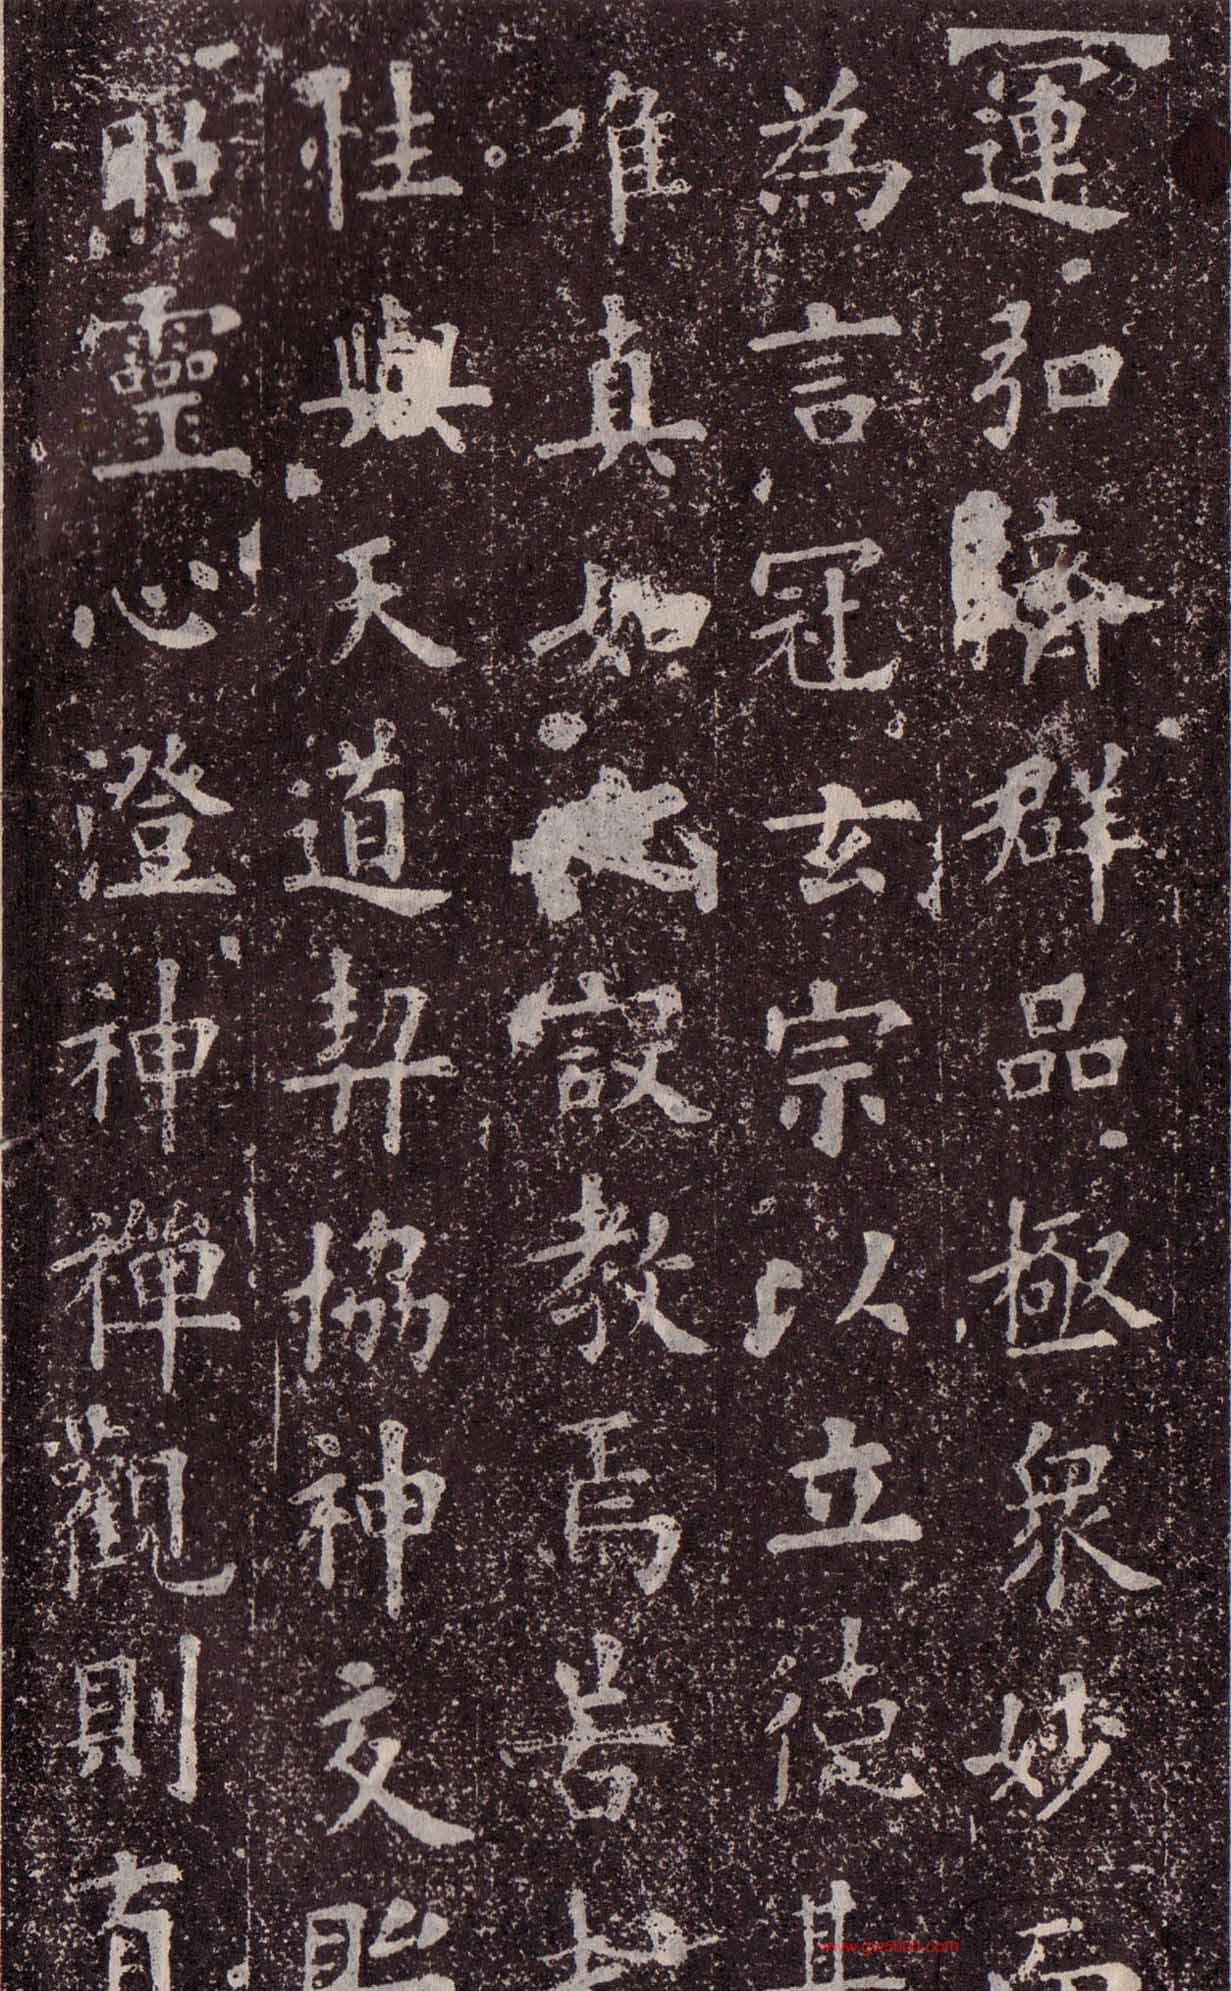 運弘濟群品極衆妙而
為言冠玄宗以立德其
唯真如之設教焉若夫
性與天道契協神交貽
照靈心澄神禪觀則有
www.gw5000.com